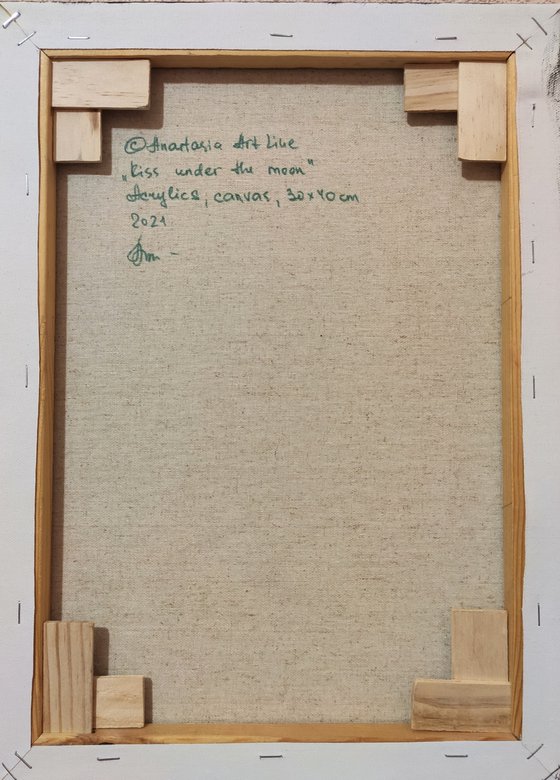 ©Anastasia Art Line
„Kiss under the moon"
Acrylics, canvas, 30x40cm
2021